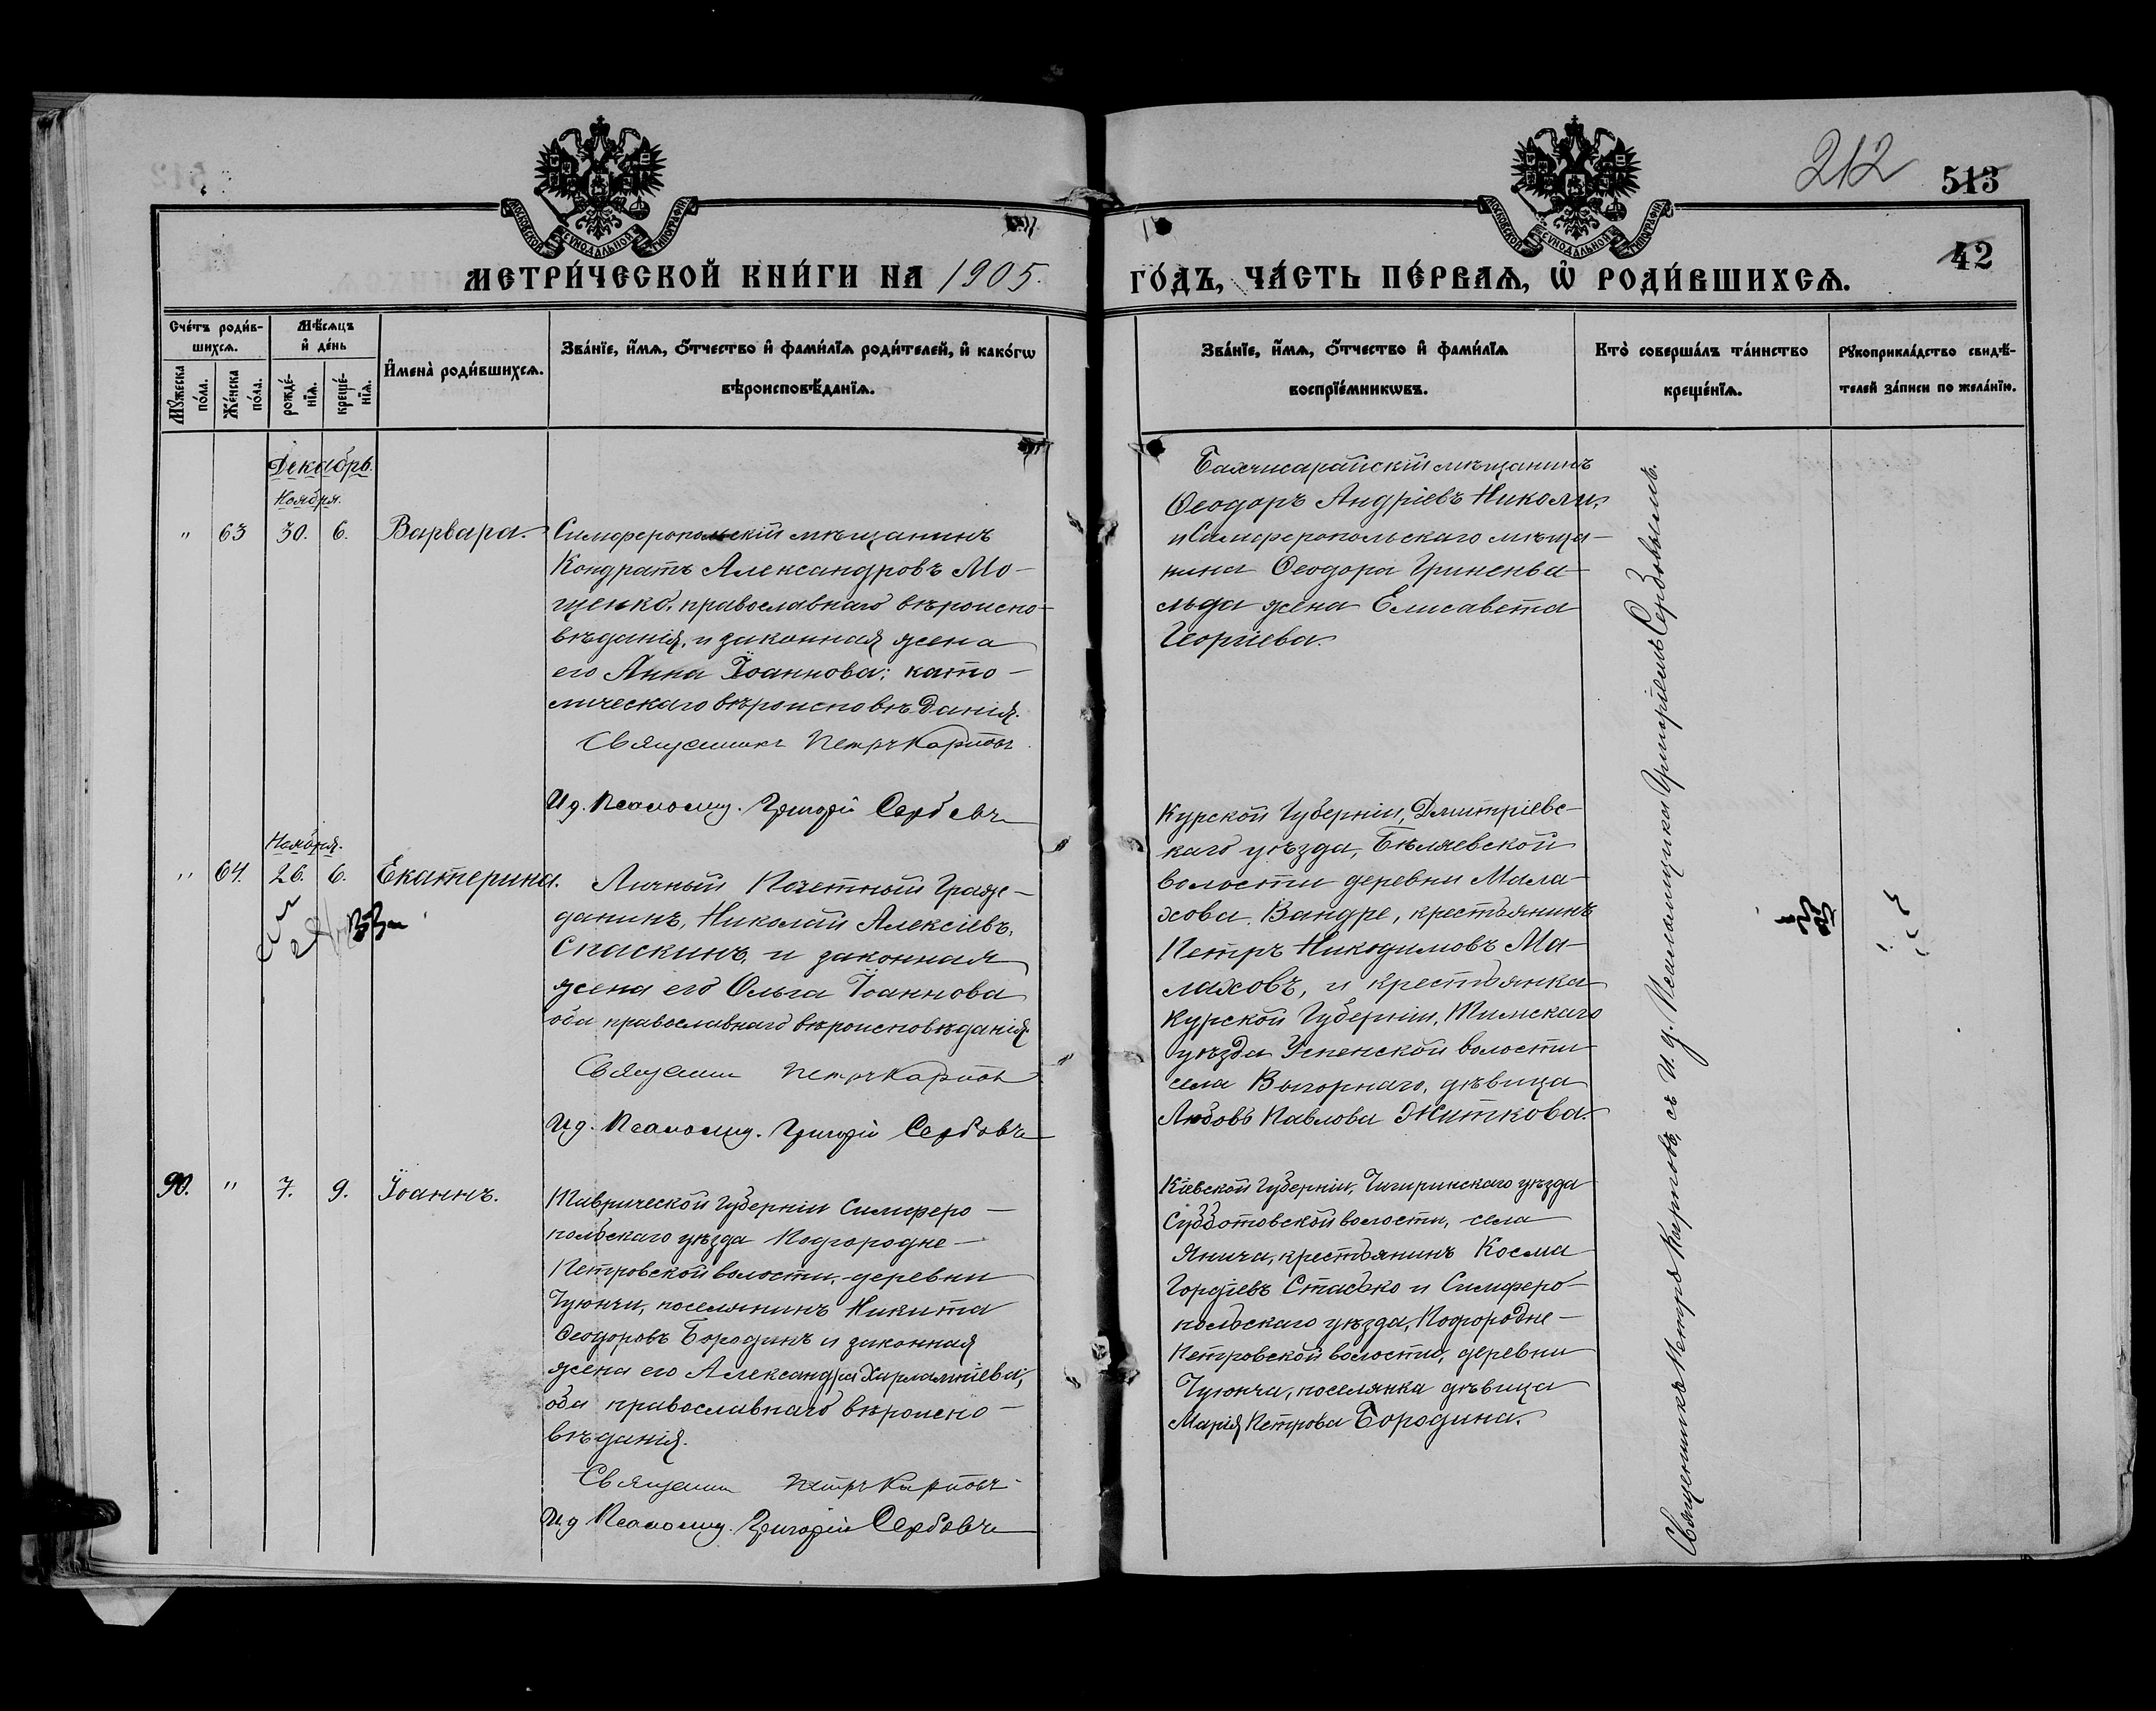 212
513
42
МОСКОВСКОЙ СѴНОДАЛЬНОЙ ТИПОГРАФІИ
МОСКОВСКОЙ СѴНОДАЛЬНОЙ ТИПОГРАФІИ
МЕТРИ́ЧЕСКОЙ КНИ́ГИ НА 1905.
ГО́ДЪ, ЧА́СТЬ ПЕ́РВАѦ, Ѡ҆ РОДИ́ВШИХСѦ.
Сче́тъ роди́в-
шихсѧ.
Мѣ́сѧцъ
и҆ де́нь
Мꙋ́жеска
по́ла.
Же́нска
по́ла.
рожде́-
нїѧ.
креще́-
нїѧ.
И҆мена̀ роди́вшихсѧ.
Зва́нїе, и҆́мѧ, ѻ҆́тчество и҆ фами́лїѧ роди́телей, и҆ како́гѡ
вѣроисповѣ́данїѧ.
Зва́нїе, и҆́мѧ, ѻ҆́тчество и҆ фами́лїѧ
воспрїе́мникѡвъ.
Кто̀ соверша́лъ та́инство
креще́нїѧ.
Рꙋкоприкла́дство свидѣ́-
телей за́писи по жела́нїю.
Декабрь.
Ноября.
" 63 30. 6. Варвара.
Симферопольскій мѣщанинъ
Кондратъ Александровъ Мо-
щенко, православнаго вѣроиспо-
вѣданія, и законная жена
его Анна Іоаннова; като-
лическаго вѣроисповѣданія.
Священникъ Петръ Карповъ
И д. Псаломщ. Григорій Сербовъ
Бахчисарайскій мѣщанинъ
Ѳеодоръ Андріевъ Николи,
и Симферопольскаго мѣща-
нина Ѳеодора Гриненва-
льда жена Елисавета
Георгіева.
Ноября.
" 64. 26. 6. Екатерина.
Личный Почетный Граж-
данинъ, Николай Алексіевъ,
Спаскинъ, и законная
жена его Ольга Іоаннова
оба православнаго вѣроисповѣданія.
Священн Петръ Карповъ
И д. Псаломщ. Григорій Сербовъ
Курской Губерніи, Дмитріевс-
каго уѣзда, Бѣляевской
волости деревни Мала-
хова Вандре, крестьянинъ
Петръ Никодимовъ Ма-
лаховъ, и крестьянка
Курской Губерніи, Тимскаго
уѣзда Успенской волости
села Выгорнаго, дѣвица
Любовь Павлова Житкова.
90. " 7. 9. Іоаннъ.
Таврической Губерніи Симферо-
польскаго уѣзда Подгородне-
Петровской волости, деревни
Чуюнчи, поселянинъ Никита
Ѳеодоровъ Бородинъ и законная
жена его Александра Харлампіева,
оба православнаго вѣроиспо-
вѣданія.
Священн Петръ Карповъ
И д Псаломщ. Григорій Сербовъ
Кіевской Губерніи, Чигиринскаго уѣзда
Субботовской волости, села
Янича, крестьянинъ Косма
Гордіевъ Стасько и Симферо-
польскаго уѣзда, Подгородне-
Петровской волости, деревни
Чуюнчи, поселянка дѣвица
Марія Петрова Бородина.
Священникъ Петръ Карповъ, съ И. д. Псаломщика Григоріемъ Сербовымъ.